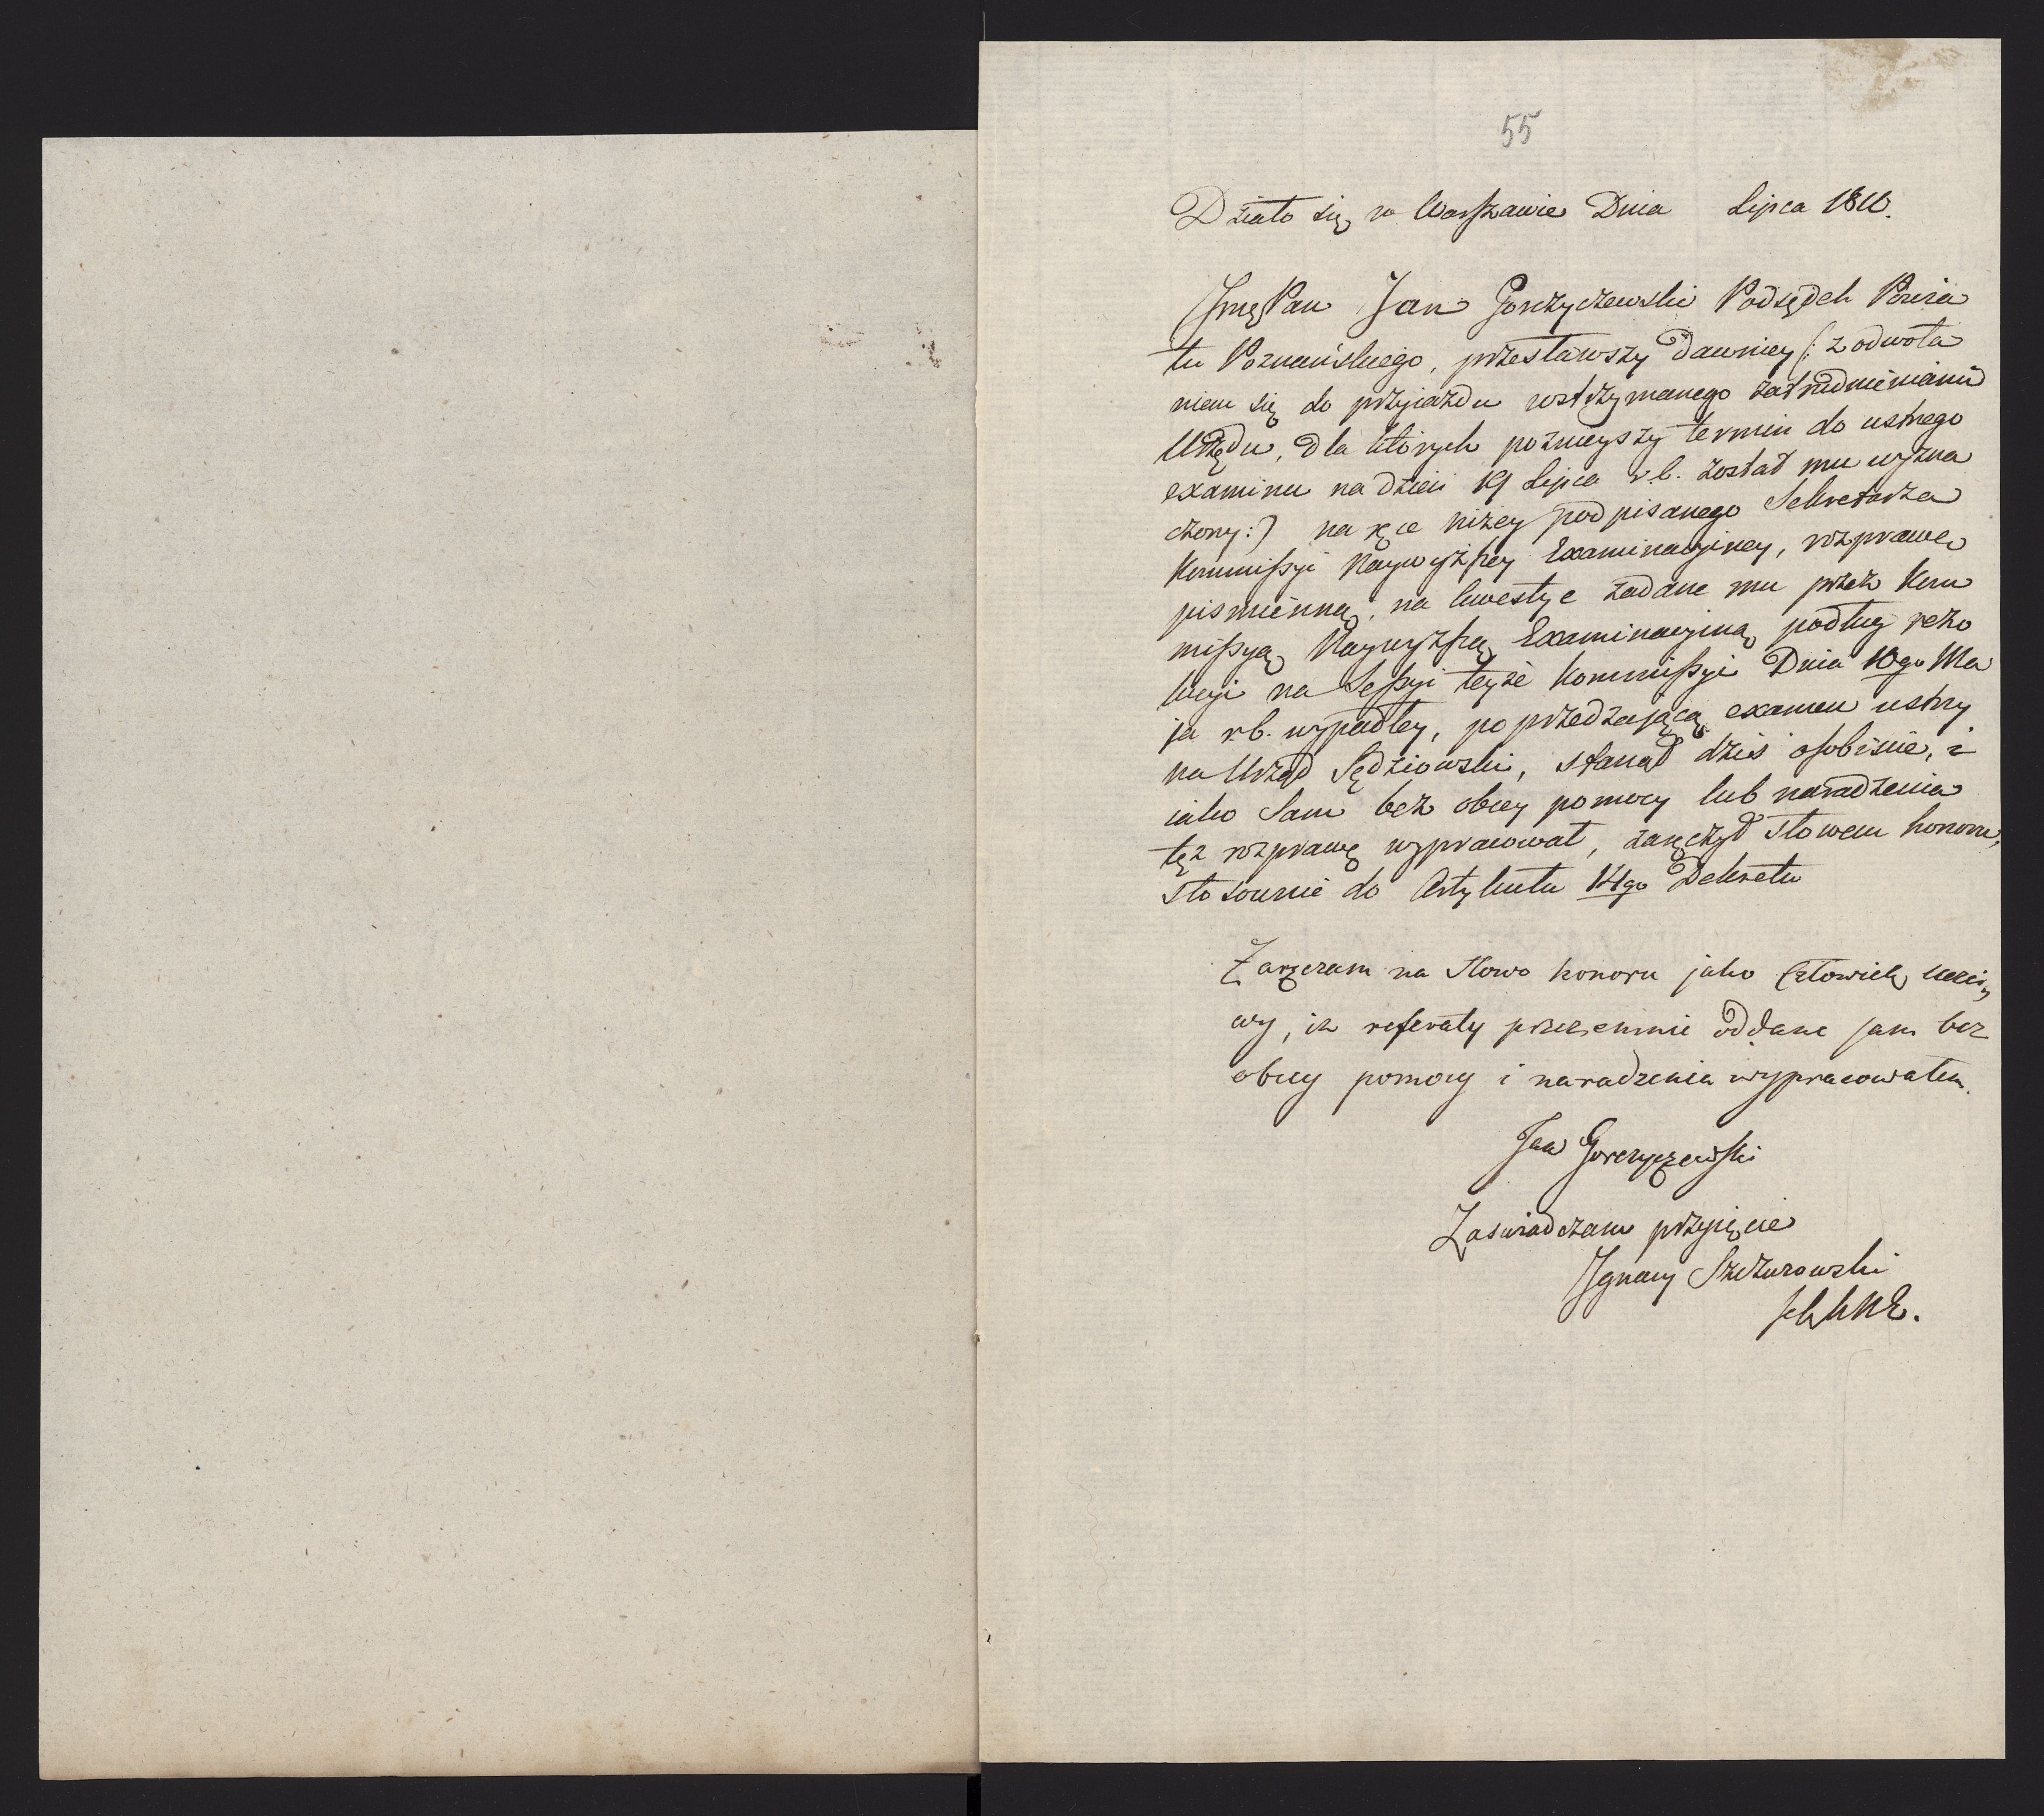 55
Działo się w Warszawie Dnia Lipca 1811.
Jmę Pan Jan Gorzyczewski Podsędek Powia
tu Poznańskiego, przesławszy dawniey (: z odwoła
niem się do przyiazdu wstrzymanego zatrudnieniami
Urzędu, dla których poźnieyszy termin do ustnego
examinu na dzień 19 Lipca r. b. został mu wyzna
czony :) na ręce niżey podpisanego Sekretarza
Kommissyi Naywyższey Examinacyiney, rozprawę
pismienną, na kwestye zadane mu przez Kom
missyą Naywyższą Examinacyiną podług rezo
lucyi na Sessyi teyże Kommissyi Dnia 10go Ma
ja r. b. wypadłey, poprzedzającą examen ustny
na Urząd Sędziowski, stanął dziś osobiście, i
iako Sam bez obcey pomocy lub naradzenia
tęż rozprawę wypracował, zaręczył słowem honoru,
stosownie do Artykułu 14go Dekretu
Zaręczam na Słowo honoru jako Człowiek uczci
wy, iż referaty przezemnie oddane sam bez
obcey pomocy i naradzenia wypracowałem.
Jan Gorczyczewski
Zaświadczam przyięcie
Ignacy Szczurowski